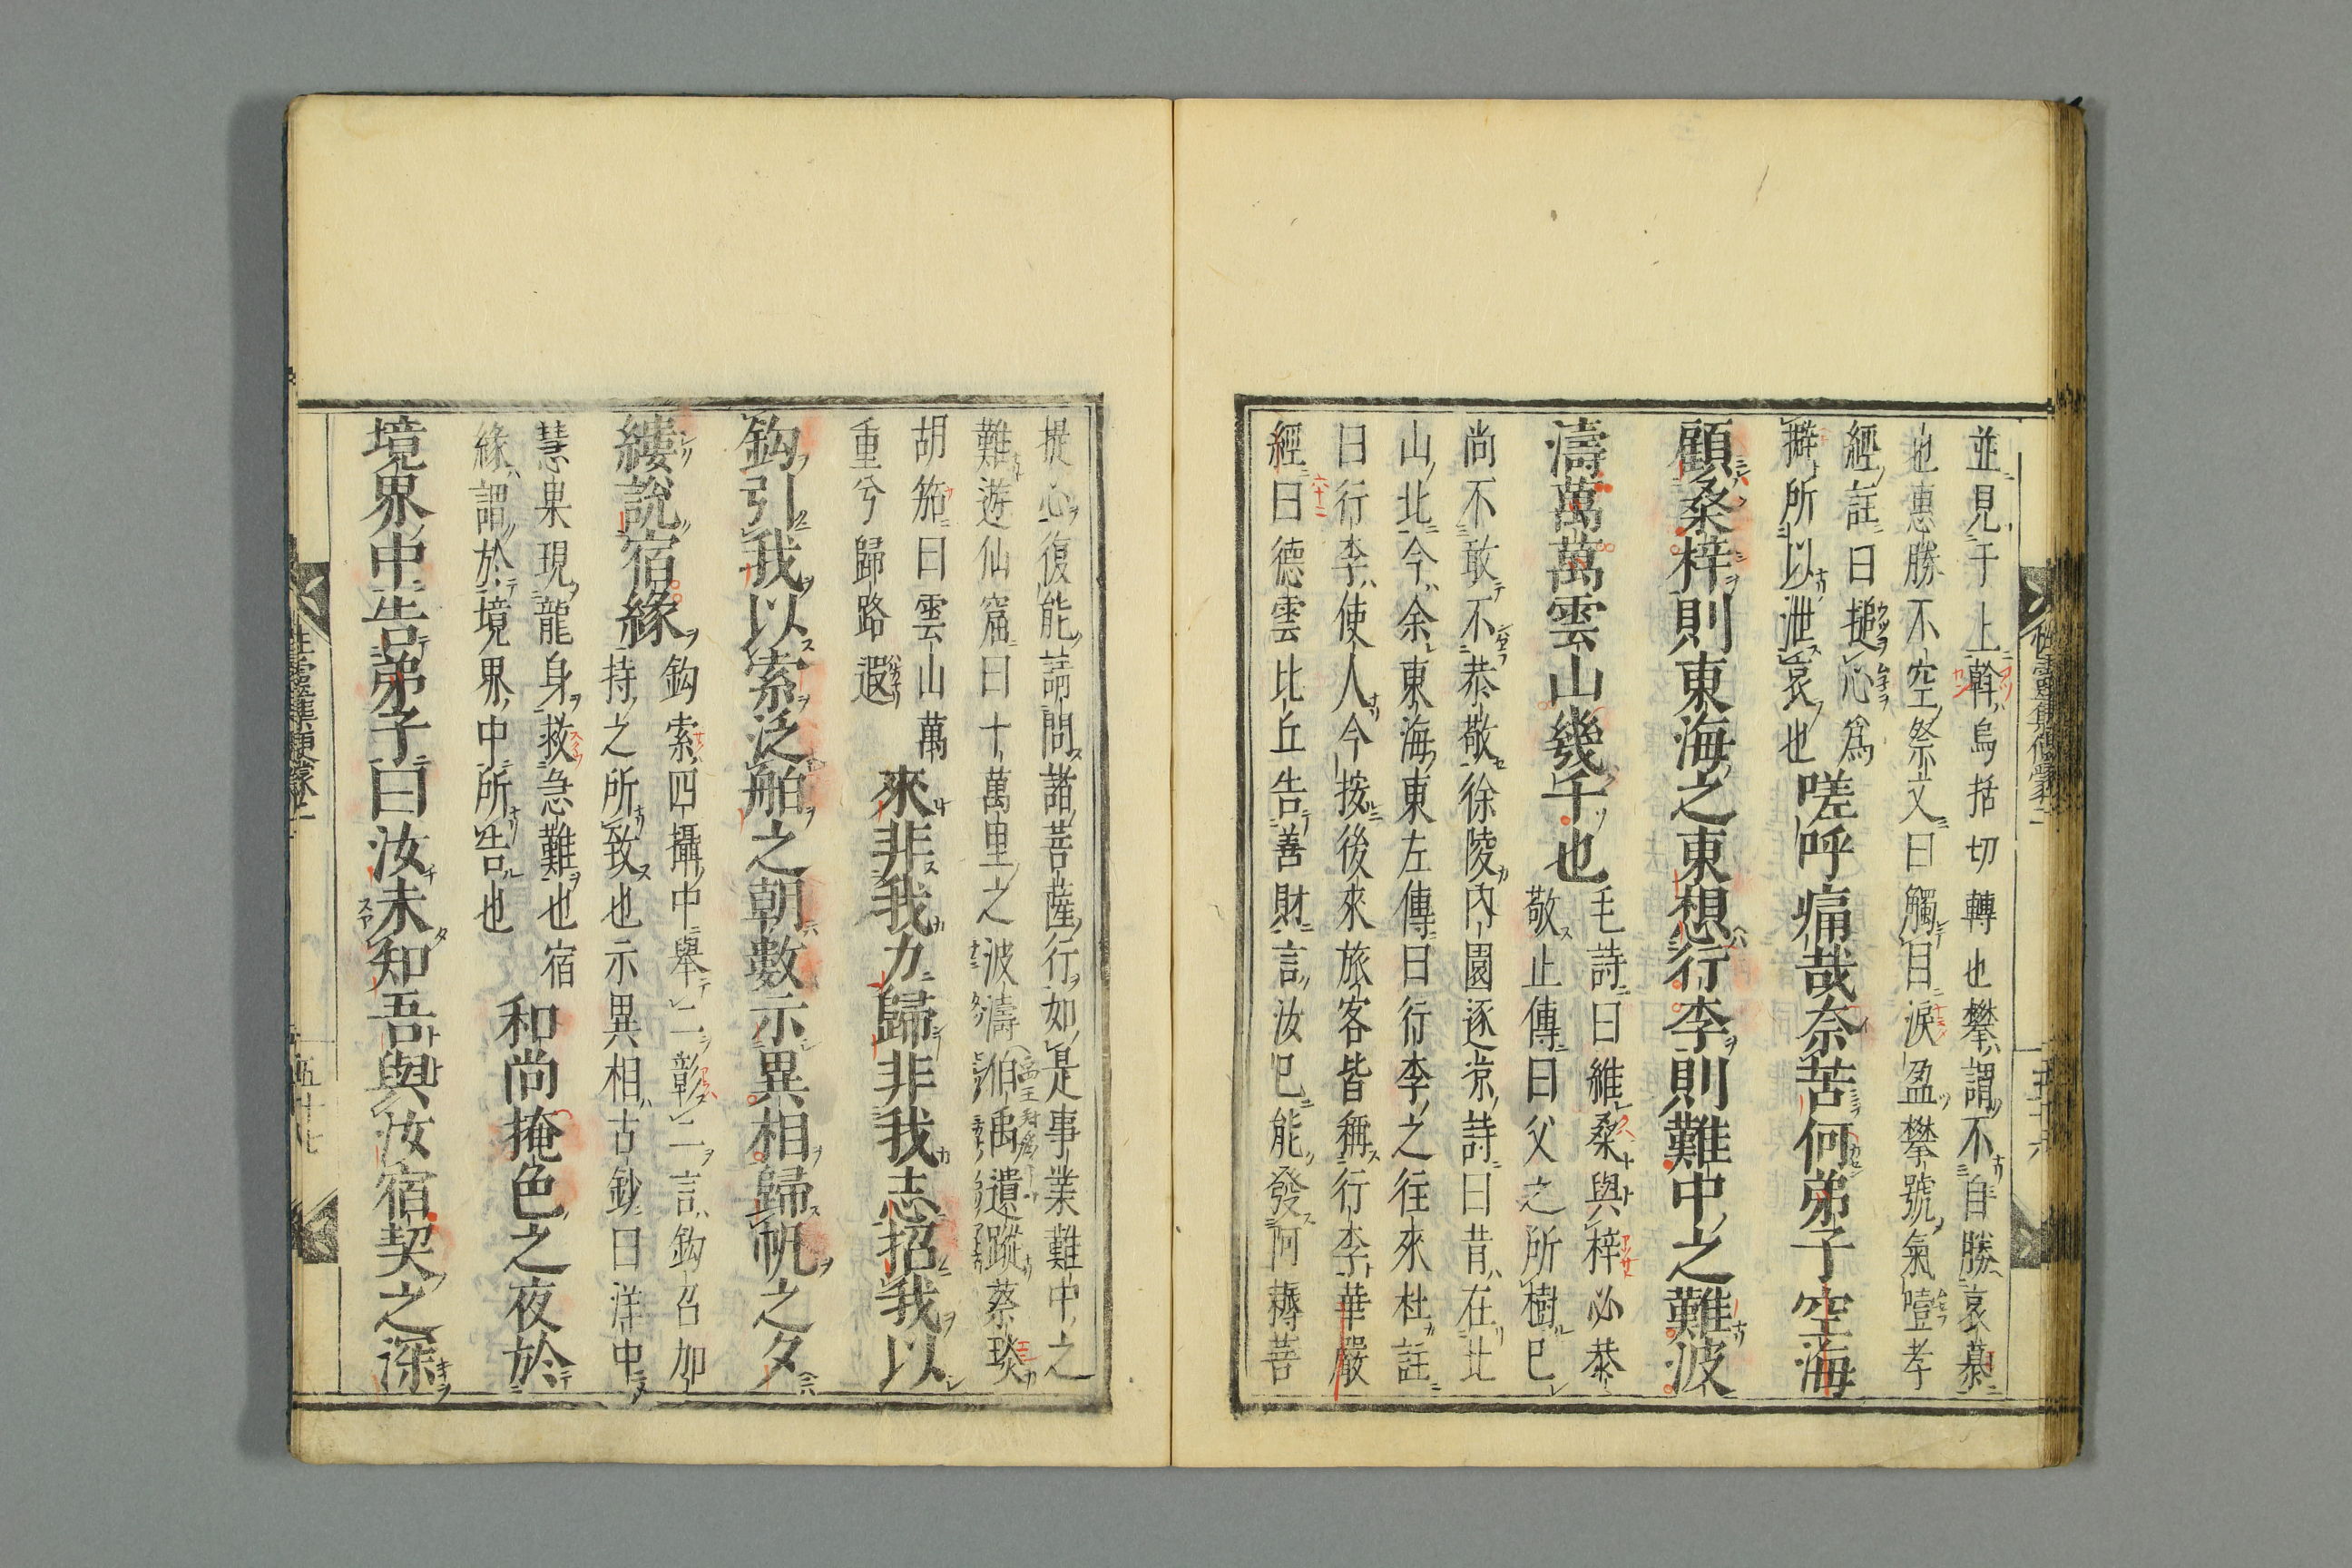 並見于上斡烏括切轉也攀謂不自勝哀慕
也惠勝不空祭文曰觸目淚盈攀號氣噎孝
經註曰搥心爲
擗所以泄哀也
嗟呼痛哉奈苦何弟子空海
顧桑梓則東海之東想行李則難中之難波
濤萬萬雲山幾千也
毛詩曰維桑與梓必恭
敬止傳曰父之所樹已
尚不敢不恭敬徐陵內園逐凉詩曰昔在北
山北今余東海東左傳曰行李之往來杜註
曰行李使人今按後來旅客皆稱行李華嚴
經曰德雲比丘告善財言汝已能發阿耨菩
提心復能請問諸菩薩行如是事業難中之
難遊仙窟曰十萬里之波濤伯禹遺蹤蔡琰
胡笳曰雲山萬
重兮歸路遐
來非我力歸非我志招我以
鈎引我以索泛舶之朝數示異相歸帆之夕
縷說宿緣
鈎索四攝中舉二彰二言鈎召加
持之所致也示異相古鈔曰洋中
慧果現龍身救急難也宿
緣謂於境界中所告也
和尚掩色之夜於
境界中告弟子曰汝未知吾與汝宿契之深
五十七